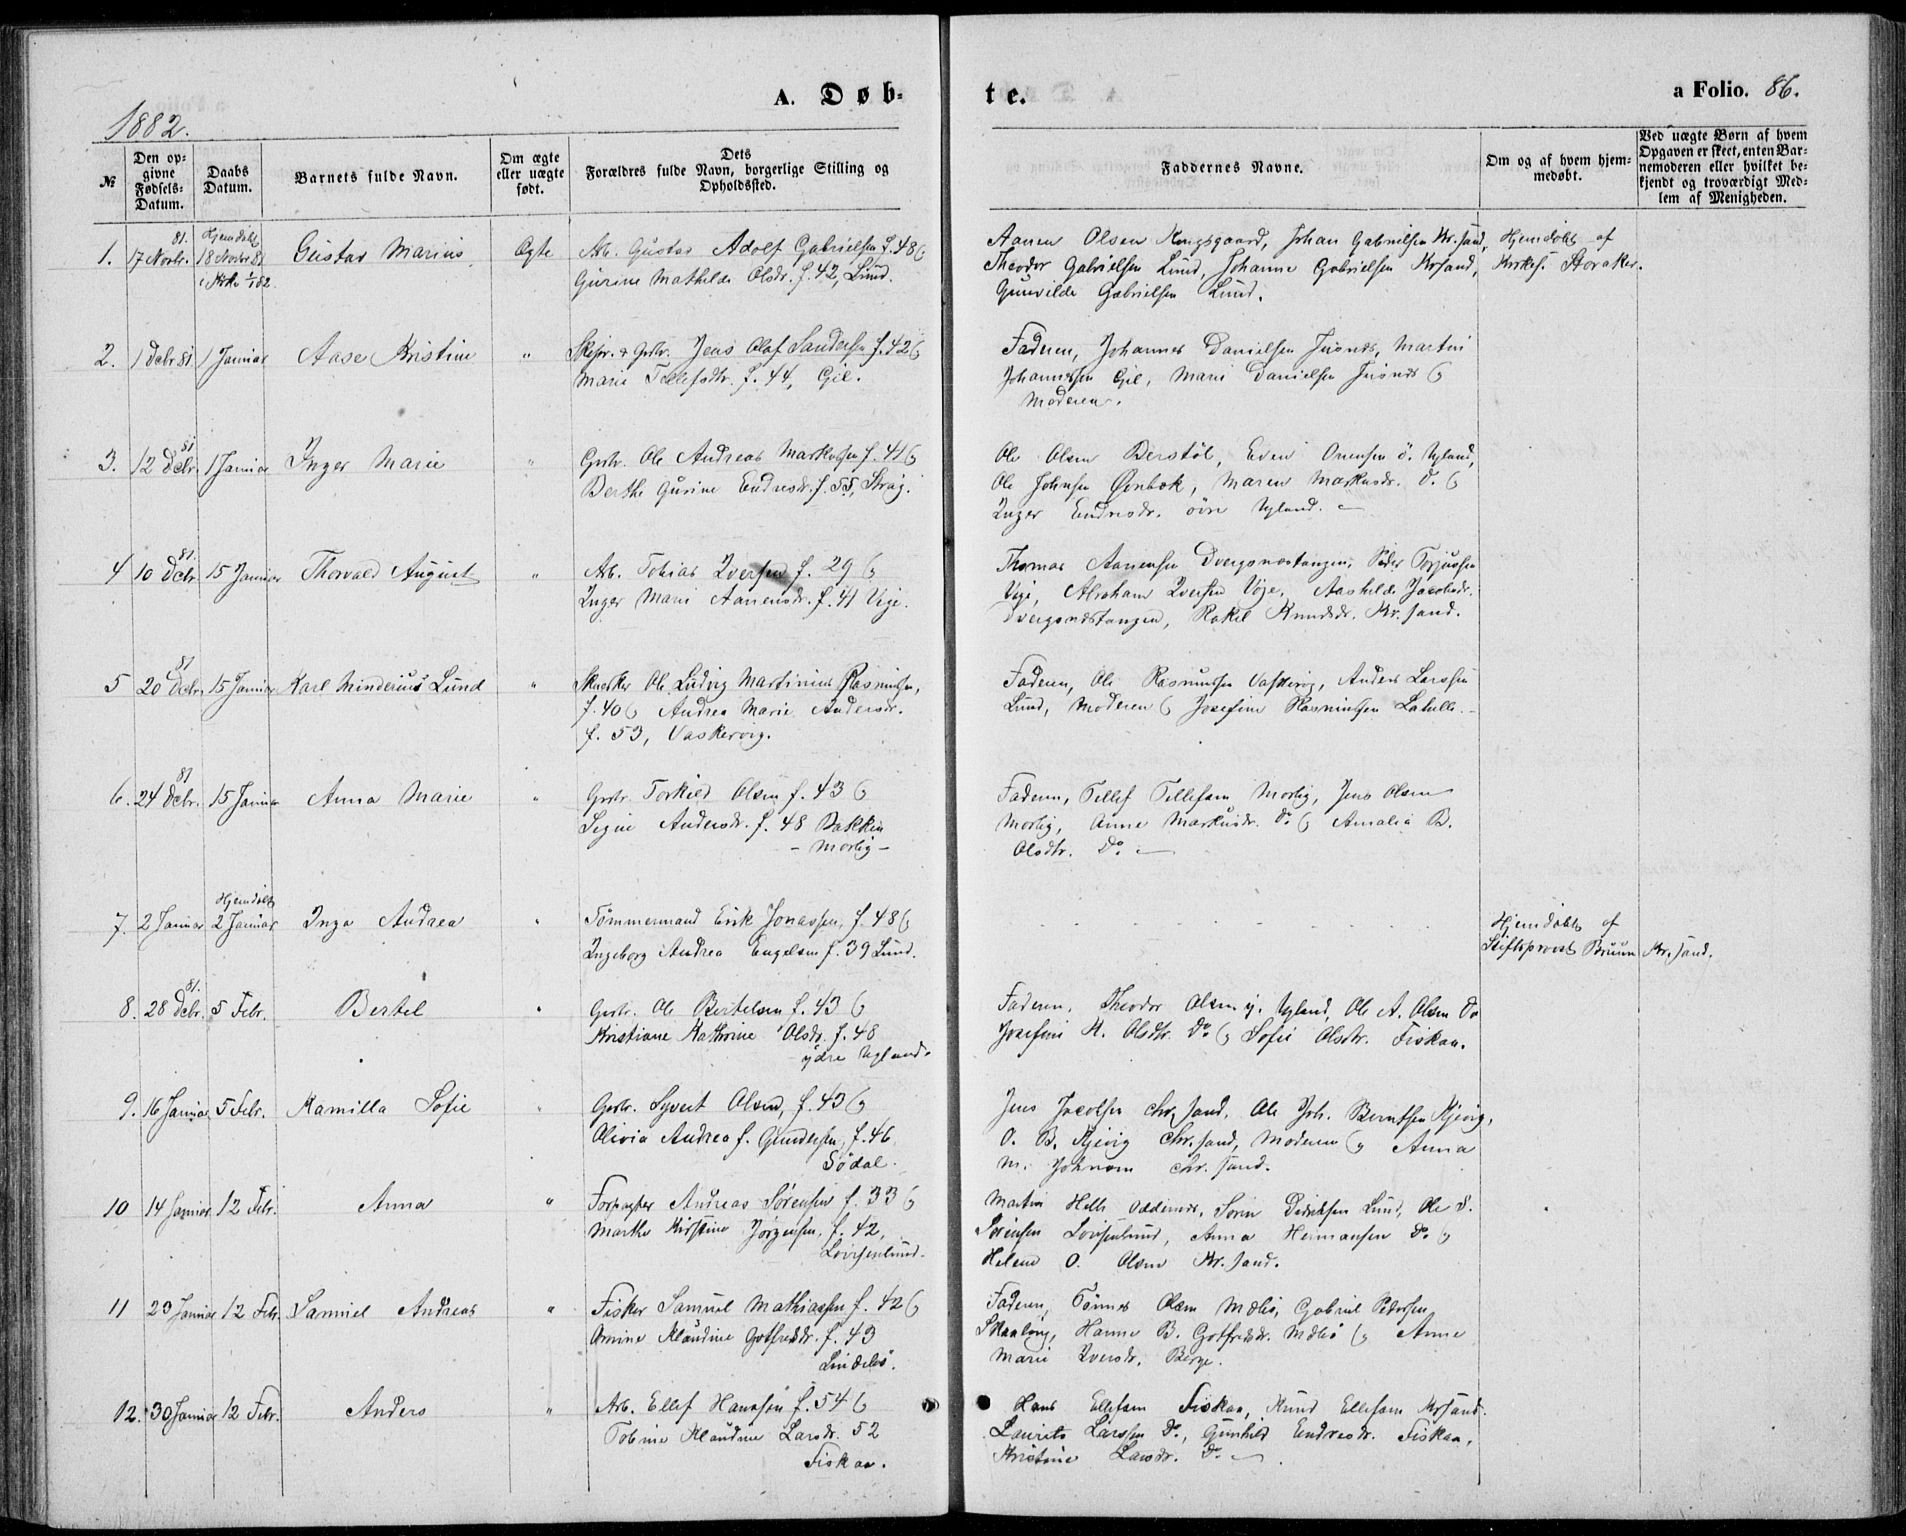 A. Døb-
te.
a Folio. 86.
1882.
№
Den op-
givne
Fødsels-
Datum.
Daabs
Datum.
Barnets fulde Navn.
Om ægte
eller uægte
født.
Dets
Forældres fulde Navn, borgerlige Stilling og
Opholdssted.
Faddernes Navne.
Om og af hvem hjem-
medøbt.
Ved uægte Børn af hvem
Opgaven er skeet, enten Bar-
nemoderen eller hvilket be-
kjendt og troværdigt Med-
lem af Menigheden.
1. 17 Novbr. 81. Hjemdøbt 18 Novbr 81 i Kirke 1/1 82 Gustav Marius Ægte
Arb. Gustav Adolf Gabrielsen f. 48 &
Gurine Mathilde Olsdr. f. 42, Lund.
Aanen Olsen Kongsgaard, Johan Gabrielsen Kr.sand,
Theodor Gabrielsen Lund, Johanne Gabrielsen Krsand,
Gunvilde Gabrielsen Lund.
Hjemdøbt af
Kirkes. Storaker.
2. 1 Debr 81 1 Januar Aase Kristine "
Skipr. & Grdr. Jens Olaf Sandersen f. 42 &
Marie Tellefsdtr. f. 44, Gil.
Faderen, Johannes Danielsen, Martin
Johannesen Gil, Marie Danielsen &
Moderen.
3. 12 Debr. 81 1 Januar Inger Marie "
Grdr. Ole Andreas Markussen f. 41 &
Berthe Gurine Endresdr. f. 55, Strai.
Ole Olsen Berstøl, Even Ormsen ö. Ugland,
Ole Johnsen, Maren Markusdr. Do. &
Inger Endresdr. övre Ugland.
4 10 Debr. 81. 15 Januar Thorvald August "
Arb. Tobias Iversen f. 29 &
Inger Marie Aanensdr. f. 41 Vige.
Thomas Aanensen Dvergsnestangen, Peder Torjussen
Vige, Abraham Iversen Vige, Aashilde Jacobsdr.
Dvergsnestangen, Rakel Knudsdr. Kr.sand.
5 20 Debr. 81 15 Januar Karl Minderius Lund "
Ole Ludvig Martinius Rasmussen,
f. 40 & Andrea Marie Andersdr.
f. 53, Vaskervig.
Faderen, Ole Rasmussen Vaskervig, Anders Larssen
Lund, Moderen & Josefine Rasmussen
6. 24 Debr. 81 15 Januar Anna Marie "
Grdr. Torkild Olsen f. 43 &
Segne Andersdr. f. 48 Bakken
- Mosby -
Faderen, Tellef Tellefsen Mosby, Jens Olsen
Mosby, Anne Markusdr. Do & Amalia B.
Olsdtr. Do.
7. 2 Januar Hjemdøbt 2 Januar Inga Andrea "
Tömmermand Erik Jonassen, f. 48 &
Ingeborg Andrea Engelsen f. 39 Lund.
Hjemdøbt af
Stiftsprovst Bruun Kr.sand.
8. 28 Debr. 81. 5 Febr. Bertel "
Grdr. Ole Bertelsen f. 43 &
Kristiane Kathrine Olsdr. f. 48
ydre Ugland.
Faderen, Theodor Olsen y. Ugland, Ole A. Olsen Do
Josefine K. Olsdtr. Do & Sofie Olsdtr. Fiskaa.
9. 16 Januar 5 Febr. Kamilla Sofie "
Grdr. Syvert Olsen, f. 43 &
Olivia Andrea f. Gundersen, f. 46
Södal.
Jens Jacobsen Chr.sand, Ole Joh. Berntsen Kjevig,
O. B. Kjevig Chr.sand, Moderen & Anna
M. Johnsen Chr.sand.
10 14 Januar 12 Febr. Anna "
Forpagter Andreas Sörensen f. 33 &
Marthe Kirstine Jörgensen, f. 42,
Lovisenlund.
Martin Helle Oddernes, Sören Didriksen Lund, Ole S.
Sörensen Lovisenlund, Anna Hermansen Do &
Helene O. Olsen Kr.sand.
11 20 Januar 12 Febr. Samuel Andreas "
Fisker Samuel Mathiassen f. 42 &
Amine Klaudine Gotfredsdr. f. 43
Lindebö.
Faderen, Tönnes Olsen Mæbö, Gabriel Pedersen
Skaalvig, Hanne B. Gotfredsdr. Mæbö & Anne
Marie Iversdr. Berge.
12. 30 Januar 12 Febr. Anders "
Arb. Ellef Hanssen f. 54 &
Tobine Klaudine Larsdr. 52
Fiskaa.
Hans Ellefsen Fiskaa, Knud Ellefsen Krsand.
Laurits Larssen Do., Gunhild Endresdr. Fiskaa,
Kristine Larsdr. Do.